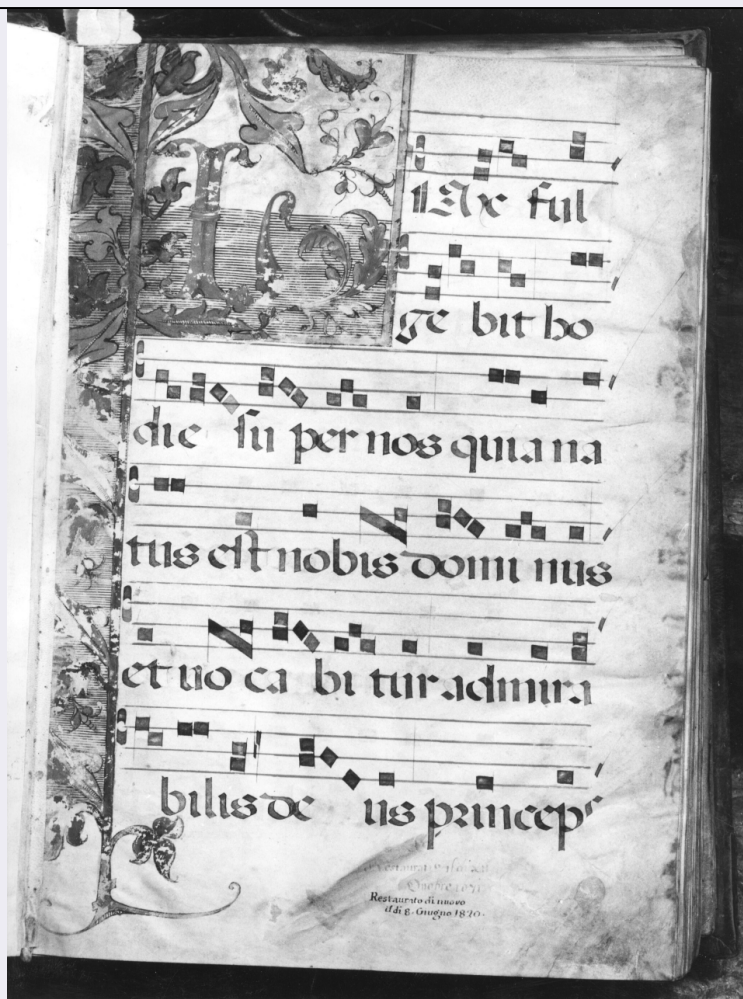 L
UX ful
ge bit ho
die su per nos quia na
tus est nobis domi nus
et uo ca bi tur admira
bilis de us princeps
Restaurato
Restaurato di nuovo
il di 8. Giugno 1820.